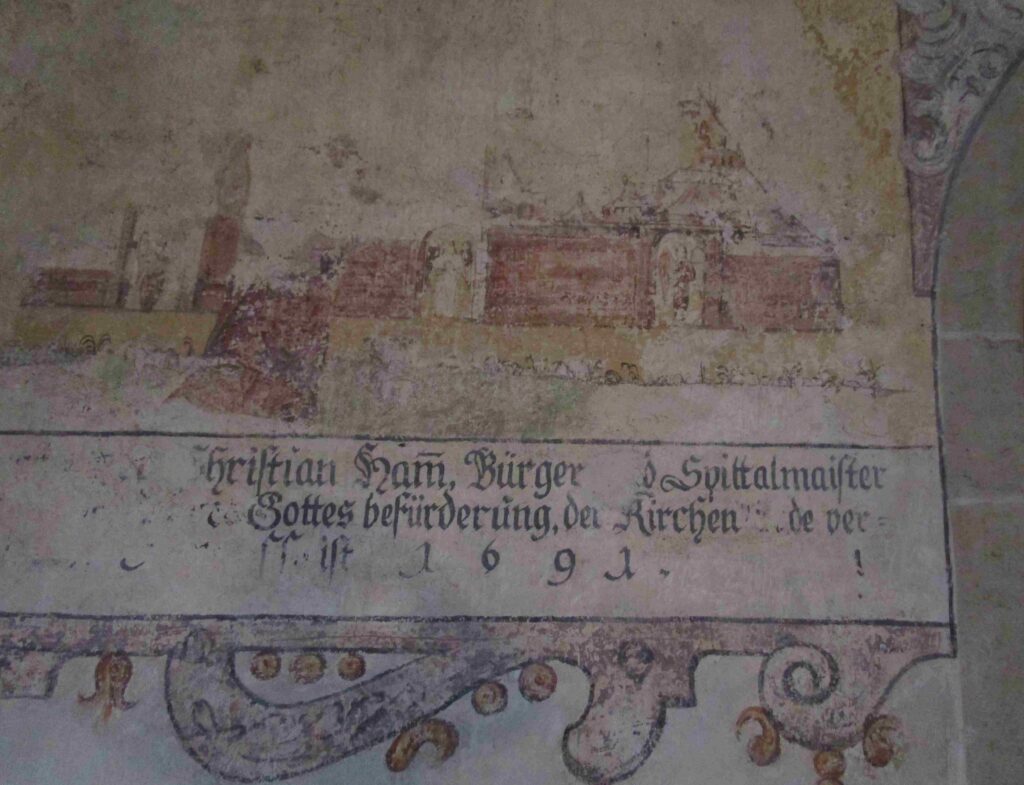 Christian Ham̄, Bürger Spittalmaister
Gottes befürderung, der Kirchen de ver=
ist 1691.